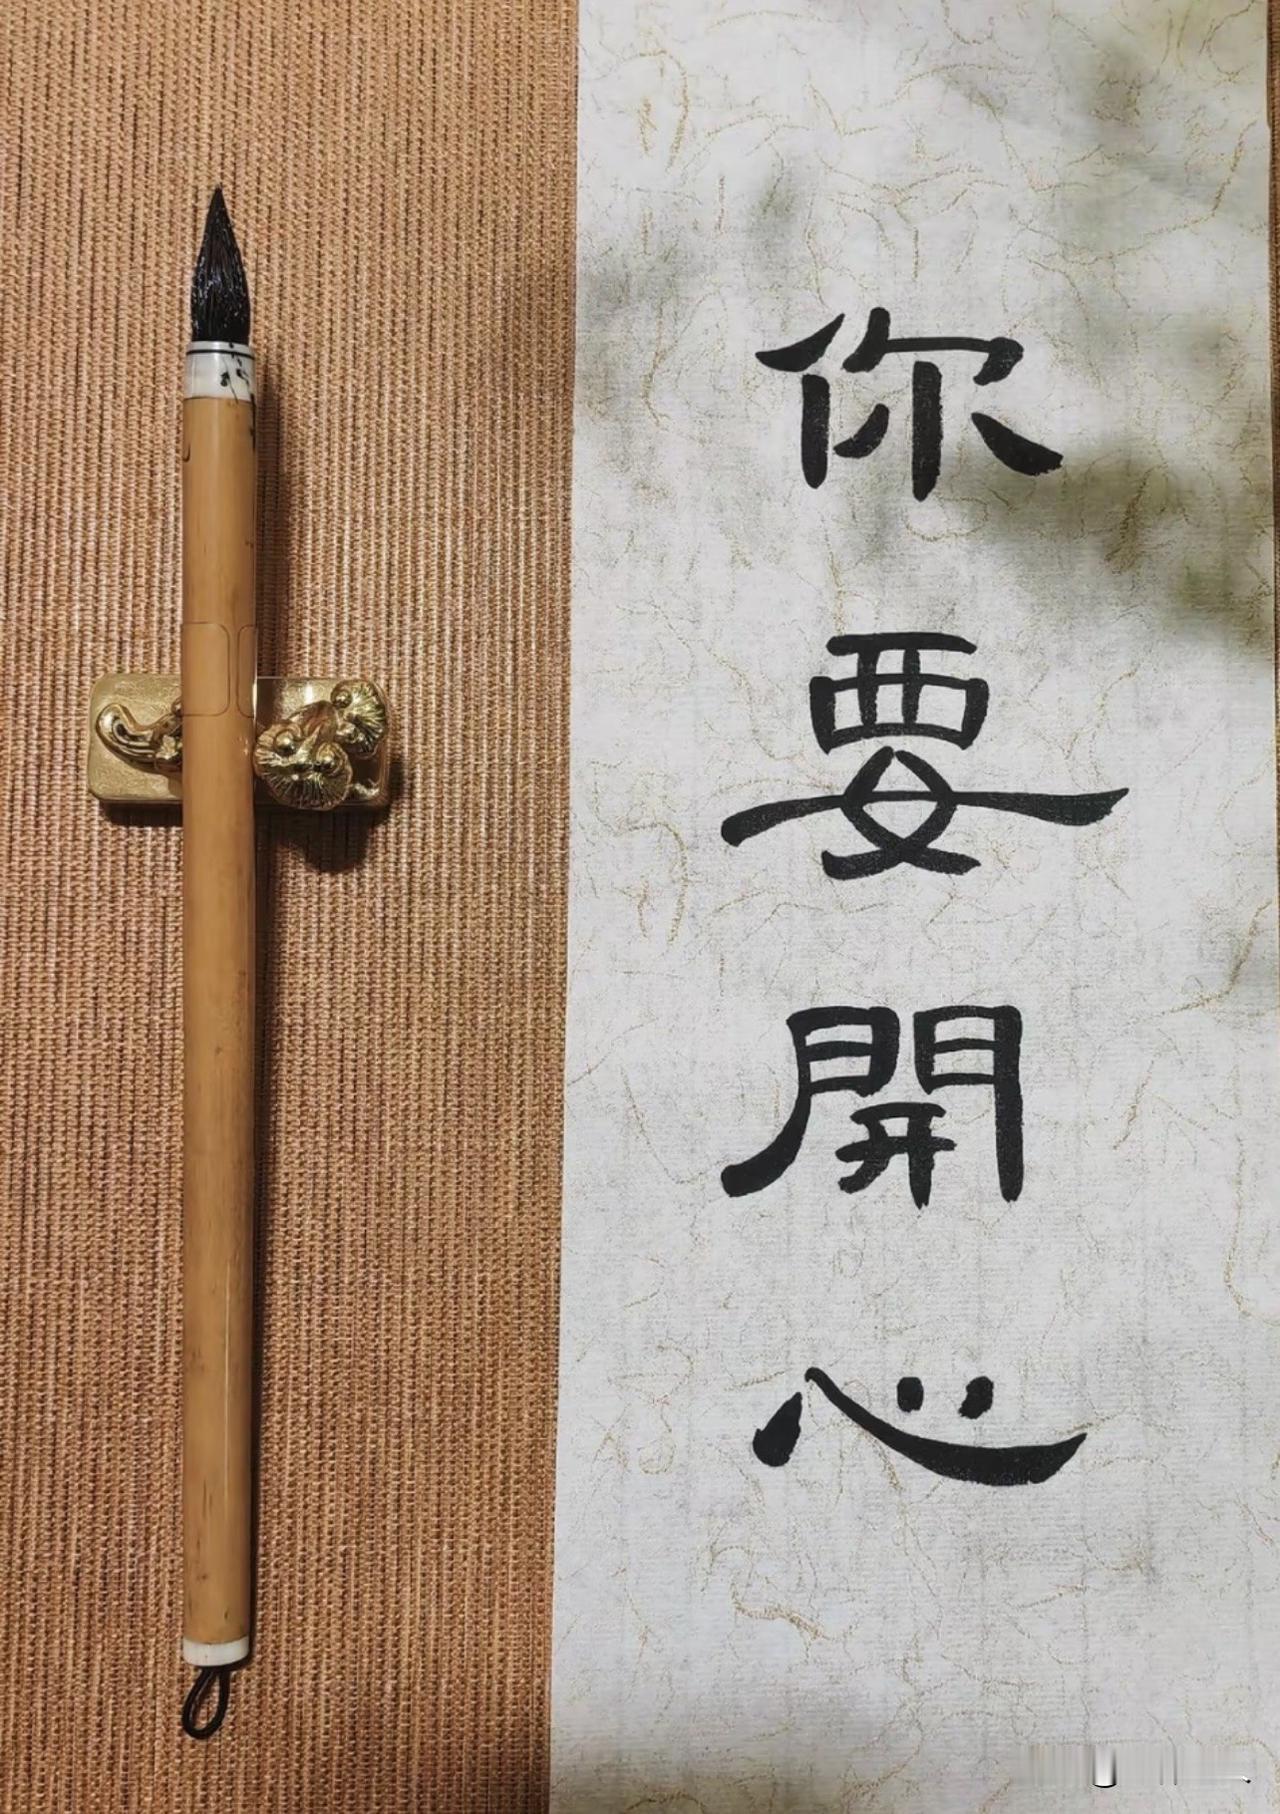 你要開心